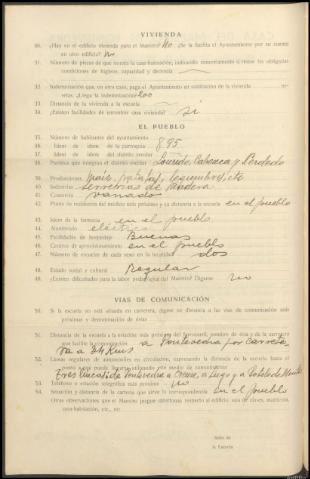 VIVIENDA
30. ¿Hay en el edificio vivienda para el Maestro? No ¿Se la facilita el Ayuntamiento por su cuenta
en otro edificio? no
31. Número de piezas de que consta la casa-habitación, indicando someramente si reúne las obligadas
condiciones de higiene, capacidad y decencia
32. Indemnización que, en otro caso, paga el Ayuntamiento en sustitución de la vivienda
¿Llega la indemnización?
33. Distancia de la vivienda a la escuela
34. ¿Existen facilidades de encontrar casa vivienda? si
EL PUEBLO
35. Número de habitantes del ayuntamiento
36. Idem de idem de la parroquia 895
37. Idem de idem del distrito escolar
38. Pueblos que integran el distrito escolar
39. Producciones maiz, patatas, legumbres, etc
40. Industrias serrerias de madera
41. Comercio variado
42. Punto de residencia del médico más próximo y su distancia a la escuela en el pueblo
43. Idem de la farmacia en el pueblo
44. Alumbrado electrico
45. Facilidades de hospedaje Buenas
46. Centros de aprovisionamiento en el pueblo
47. Número de escuelas de cada sexo en la localidad dos
48. Estado social y cultural Regular
49. ¿Existen dificultades para la labor pedagógica del Maestro? Dígase no
VIAS DE COMUNICACIÓN
50. Si la escuela no está situada en carretera, dígase su distancia a las vías de comunicación más
próximas y denominación de ésta
51. Distancia de la escuela a la estación más próxima del ferrocarril, nombre de ésta y de la carretera
que facilite la comunicación a Pontevedra por carretera
52. Líneas regulares de automóviles en circulación, expresando la distancia de la escuela hasta el
punto a que pueda llegarse utilizando este medio de comunicación
53. Teléfono o estación telegráfica más próximo no
54. Situación y distancia de la cartería que sirve la correspondencia en el pueblo
Otras observaciones que el Maestro juzgue distintivas respecto al edificio sala de clases, material,
casa-habitación, etc., etc.
Sello de
la Escuela